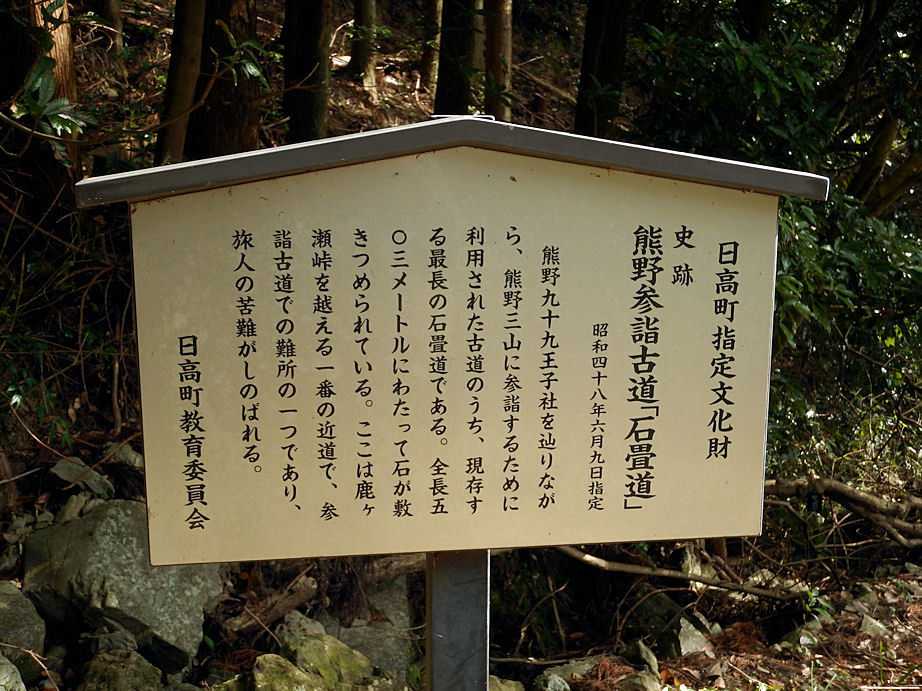 日高町指定文化財
史跡
熊野参詣古道「石畳道」
昭和四十八年六月九日指定
熊野九十九王子社を辿りなが
ら、熊野三山に参詣するために
利用された古道のうち、現存す
る最長の石畳道である。全長五
〇三メートルにわたって石が敷
きつめられている。ここは鹿ヶ
瀬峠を越える一番の近道で、参
詣古道での難所の一つであり、
旅人の苦難がしのばれる。
日高町教育委員会